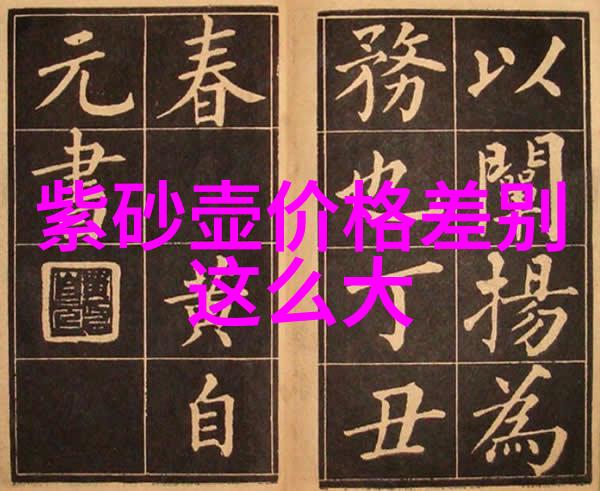 紫砂壶价格差别
这么大
以闡揚為
務也丁丑
春 黄自
元書